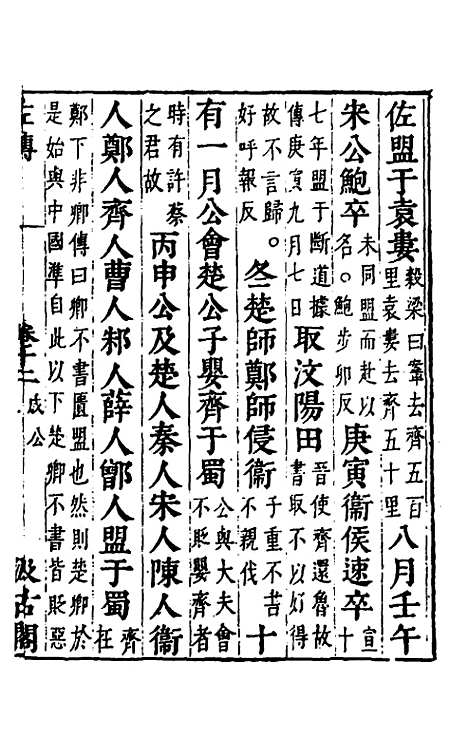 佐盟于袁婁榖梁曰鞌去齊五百里袁婁去齊五十里八月壬午
宋公鮑卒未同盟而赴以名。鮑步卯反庚寅衞侯速卒宣十
七年盟于斷道據傳庚寅九月七日取汶陽田晉使齊還魯故書取不以好得
故不言歸。好呼報反冬楚師鄭師侵衞子重不書不親伐十
有一月公會楚公子嬰齊于蜀公與大夫會不貶嬰齊者
時有許蔡之君故丙申公及楚人秦人宋人陳人衞
人鄭人齊人曹人邾人薛人鄫人盟于蜀齊在
鄭下非卿傳曰卿不書匱盟也然則楚卿於是始與中國準自此以下楚卿不書皆貶惡
左傳 卷十二 成公 汲古閣